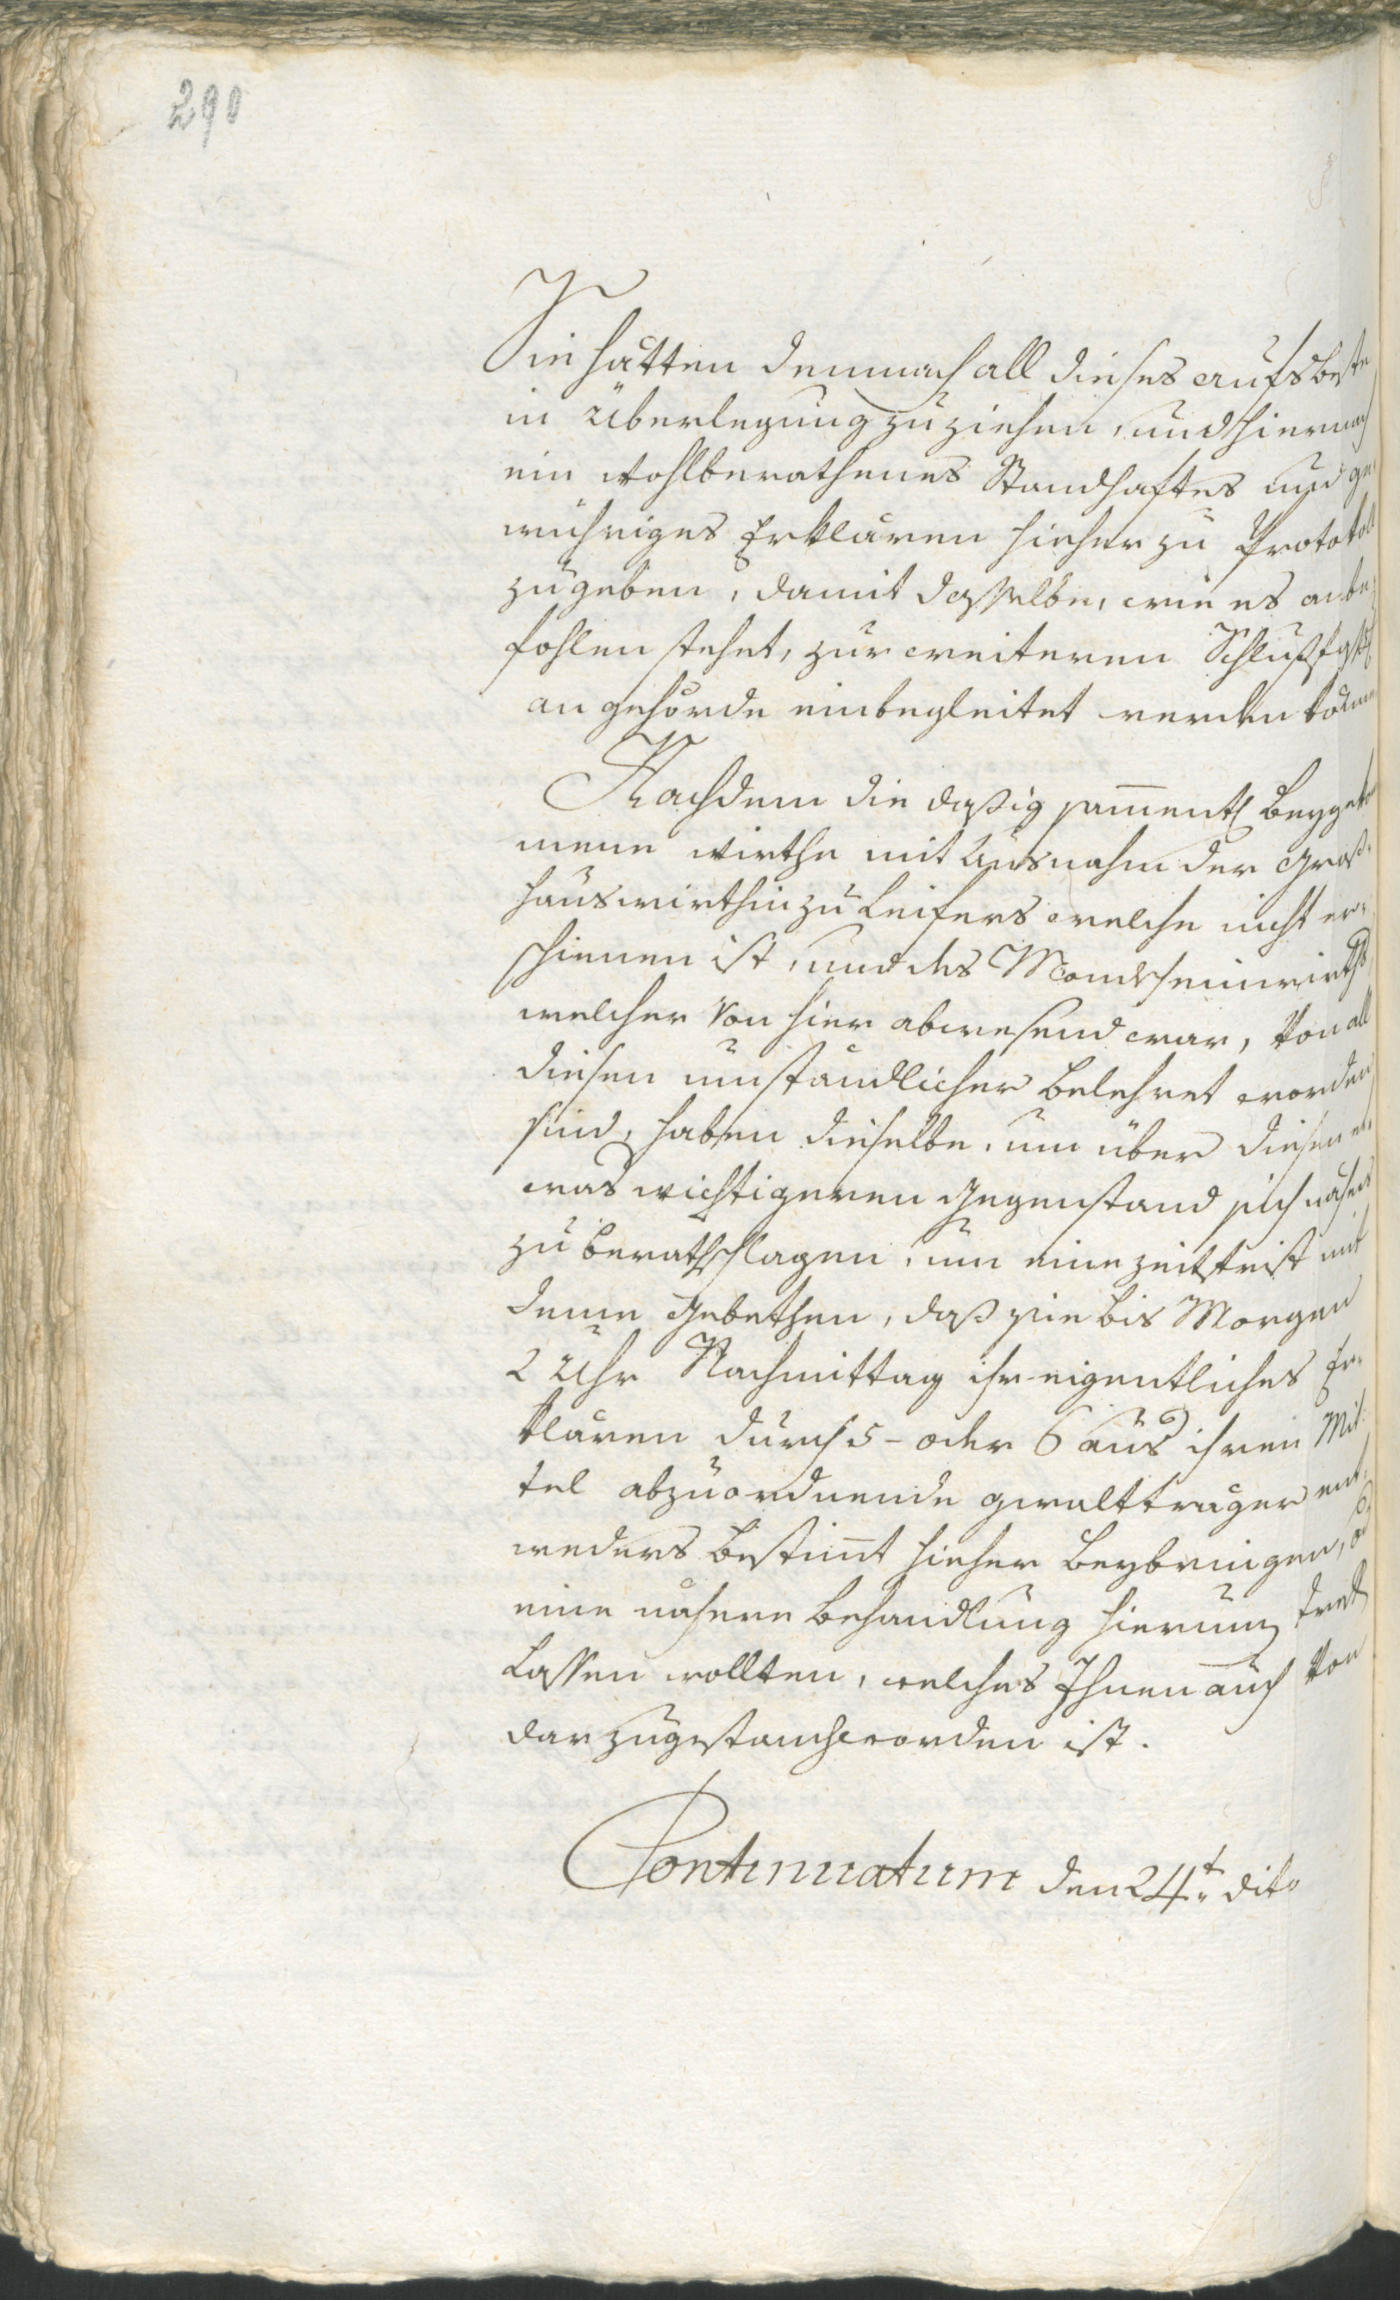 290
Sie hätten demnach all dieses aufs beste
in Überlegung zu ziehen, und hiernach
ein wohlberathenes Standhaftes und ge-
wühriges Erklären hieher zu Protokoll
zugeben, damit dasselbe, wie es anbe-
fohlen stehet, zur weiteren
an gehörde einbegleitet werden könne
Nachdem die dasig sammentl beygeko
mene Wirthe mit Ausnahm der Groß-
hauswirthin zu Leifers welche nicht er-
schienen ist, und des Mondscheinwirths
welcher von hier abwesend war, von all
diesen umständlicher belehret worden
sind, haben dieselbe, um über diesen et-
was wichtigeren Gegenstand sich nähers
zu berathschlagen, um eine Zeitsfrist mit
deme gebethen, daß sie bis Morgen
2 Uhr Nachmittag ihr eigentliches Er-
klären durch 5- oder 6 aus ihren Mit-
tel abzuordnende gwalttrager ent-
weders bestimt hieher beybringen, od
eine nähere Behandlung hierum
lassen wollten, welches Ihnen auch von
dar zugestanden worden ist.
Continuatum den 24t dito